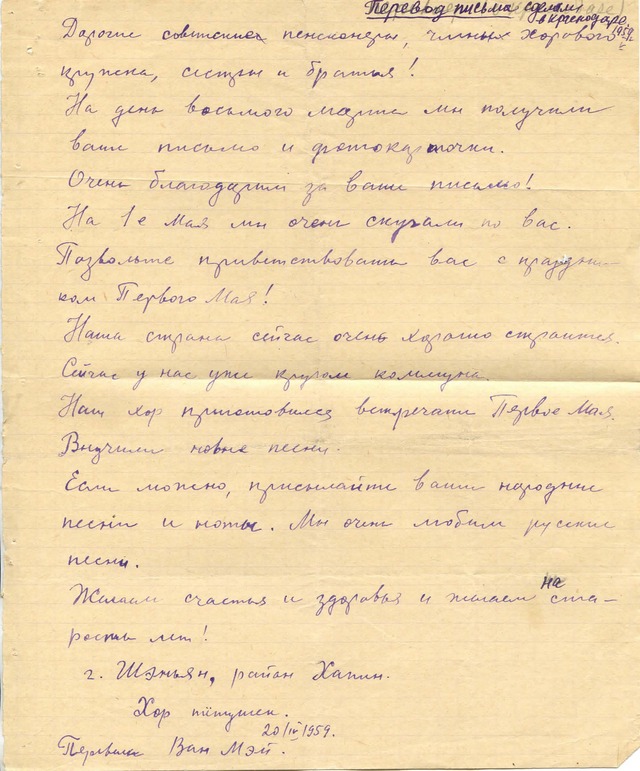 Перевод письма сделан
в Краснодаре
1959 г.
Дарогие советские пенсионеры, члнных хорового
кружка, сестры и братья!
На день восьмого марта мы получили
ваше письмо и фотокарточки.
Очень благодарим за ваше письмо!
На 1е Мая мы очень скучали по вас.
Позвольте приветствовать вас с праздни
ком Первого Мая!
Наша страна сейчас очень хорошо строится.
Сейчас у нас уже кругом коммуна.
Наш хор приготовился встречать Первое Мая.
Выучили новые песни.
Если можно, присылайте ваши народные
песни и ноты. Мы очень любим русские
песни.
Желаем счастья и здоровья и желаем на ста-
рости лет!
г. Шэньян, район Хапин.
Хор
20/IV 1959.
Ван Мэй.